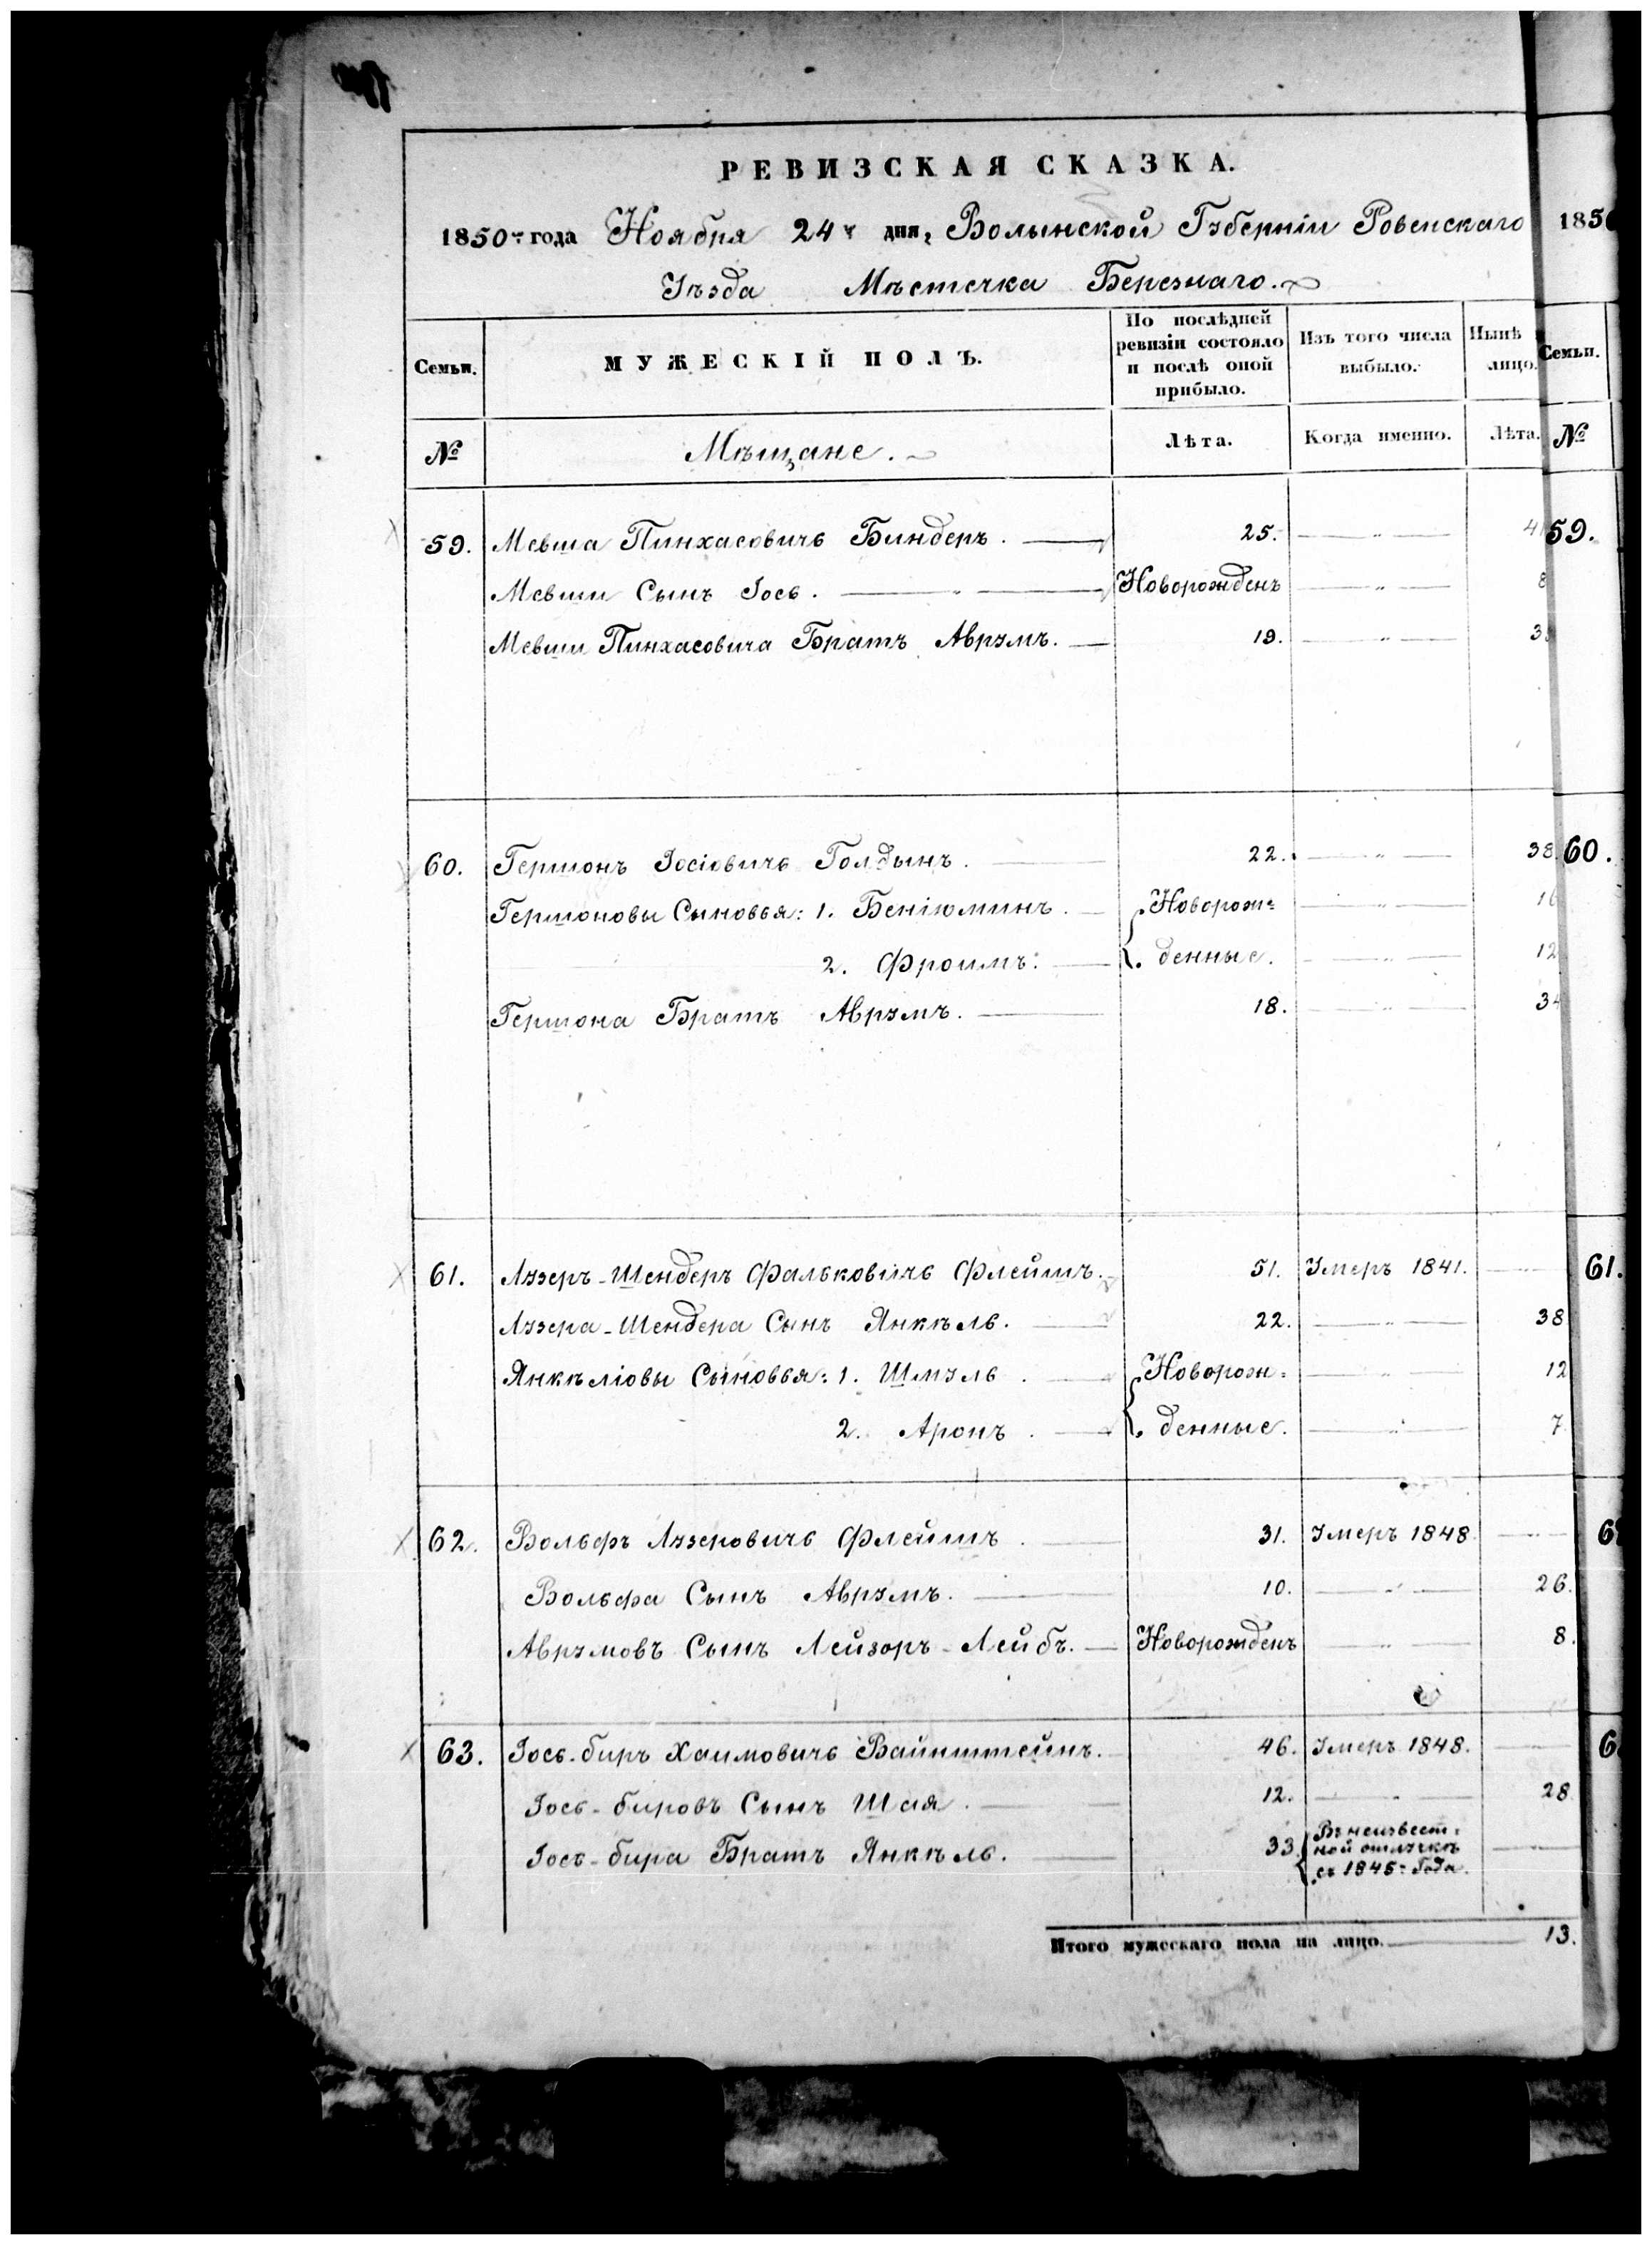 РЕВИЗСКАЯ СКАЗКА.
1850 года Ноября 24 дня, Волынской Губерніи Ровенскаго
Уѣзда Мѣстечка Березнаго.
Семьи. МУЖЕСКІЙ ПОЛЪ. По послѣдней ревизіи состояло и послѣ оной прибыло. Изъ того числа выбыло. Нынѣ лицо.
№ Мѣщане. Лѣта. Когда именно. Лѣта.
59. Мевша Пинхасовичь Биндеръ. 25.
Мевши Сынъ Іось. Новорожденъ 8
Мевши Пинхасовича Братъ Аврумъ. 19.
60. Гершонъ Іосіовичь Голдынъ. 22. 38.
Гершоновы Сыновья: 1. Беніюминъ. Новорож= 16
2. Фроимъ. денные. 12
Гершона Братъ Аврумъ. 18. 34
61. Лузеръ-Шендеръ Фальковичь Флейшъ. 51. Умеръ 1841.
Лузера-Шендера Сынъ Янкѣль. 22. 38
Янкѣліовы Сыновья: 1. Шмуль. Новорож= 12
2. Аронъ. денные. 7
62. Вольфъ Лузеровичь Флейшъ. 31. Умеръ 1848
Вольфа Сынъ Аврумъ. 10. 26.
Аврумовъ Сынъ Лейзоръ-Лейбъ. Новорожденъ 8.
63. Іось-биръ Хаимовичь Вайнштейнъ. 46. Умеръ 1848.
Іось-бировъ Сынъ Шая. 12. 28
Іось-бира Братъ Янкѣль. 33. Въ неизвест=
ной отлучкѣ
съ 1845 года.
Итого мужескаго пола на лицо. 13.
185
Семьи.
№
59.
60.
61.